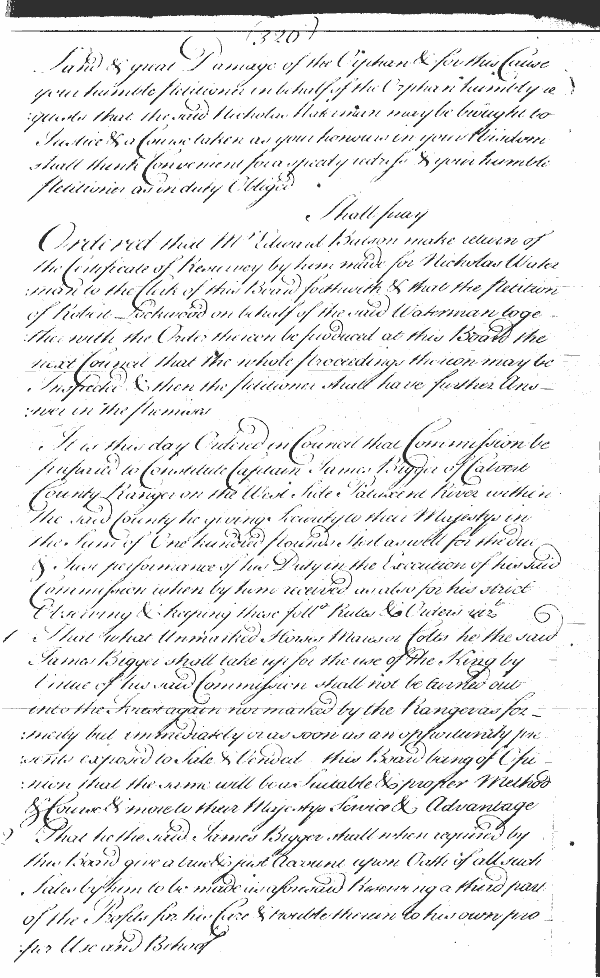 (320)
Land & great Damage of the Orphan & for this Cause
your humble Petitioner in behalf of the Orphan humbly re
quests that the said Nicholas Waterman may be brought to
Justice & a Course taken as your honours in your Wisdom
shall think Convenient for a speedy redress & your humble
Petitioner as in duty Obliged
Shall pray
Ordered that Mr Edward Batson make return of
the Certificate of Resurvey by him made for Nicholas Water
man to the Clerk of this Board forthwith & that the Petition
of Robert Lockwood on behalf of the said Waterman toge
ther with the Order thereon be produced at this Board the
next Council that the whole proceedings thereon may be
Inspected & then the Petitioner shall have further Ans–
wer in the premises
It is this day Ordered in Council that Commission be
prepared to Constitute Captain James Bigger of Calvert
County Ranger on the West Side Patuxent River within
the said County he giving Security to their Majestys in
the Sum of One hundred pounds Sterl as well for the due
& Just performance of his Duty in the Execution of his said
Commission when by him received as also for his strict
Observing & keeping these follo Rules & Orders vizt
1 That what Unmarked Horses Mares or Colts he the said
James Bigger shall take up for the use of the King by
Virtue of his said Commission shall not be turned out
into the Forest again nor marked by the Ranger as for–
merly but immediately or as soon as an opportunity pre
sents exposed to Sale & Vended this Board being of Opi–
nion that the same will be a Suitable & proper Method
& Course & more to their Majestys Service & Advantage
2 That he the said James Bigger shall when required by
this Board give a true & just Account upon Oath of all such
Sales by him to be made as aforesaid Reserving a third part
of the Profits for his Care & trouble therein to his own pro–
per Use and Behoof